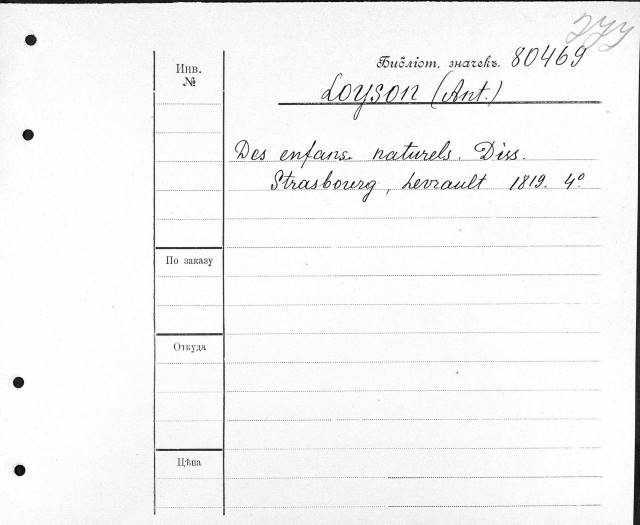 Инв. №
Библіот. значекъ. 80469
Loyson (Ant.)
Des enfans naturels. Diss.
Strasbourg, Levrault 1819. 4°
По заказу
Откуда
Цѣна